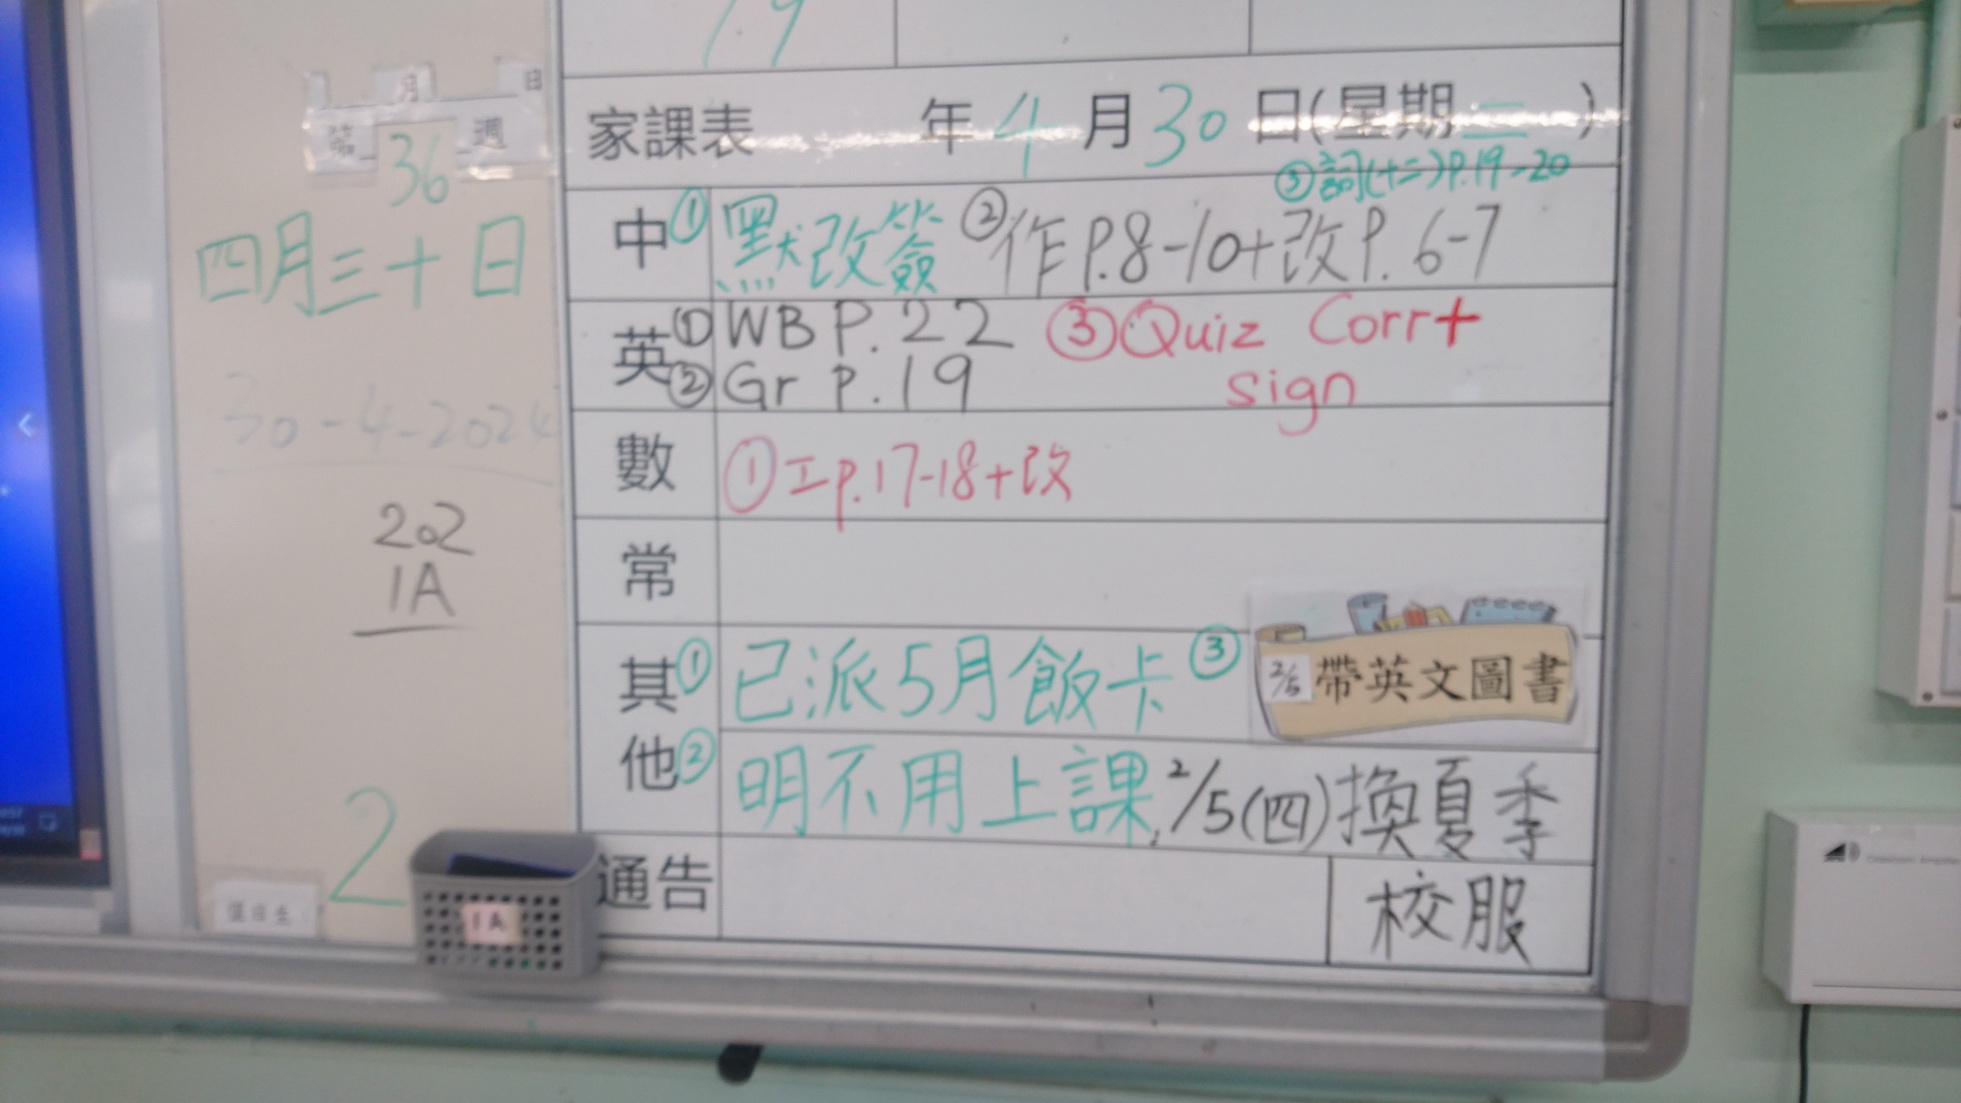 19
月 日
第 36 週
四月三十日
30-4-2024
202
1A
2
值日生
1A
家課表 年 4 月 30 日(星期二)
③詞(十二)P.19-20
中 ①默改簽 ②作P.8-10+改P.6-7
英 ①WB P.22 ③Quiz Corr+
②Gr P.19 sign
數 ①工p.17-18+改
常
其他 ①已派5月飯卡 ③ 2/5 帶英文圖書
②明不用上課, 2/5(四)換夏季
通告 校服